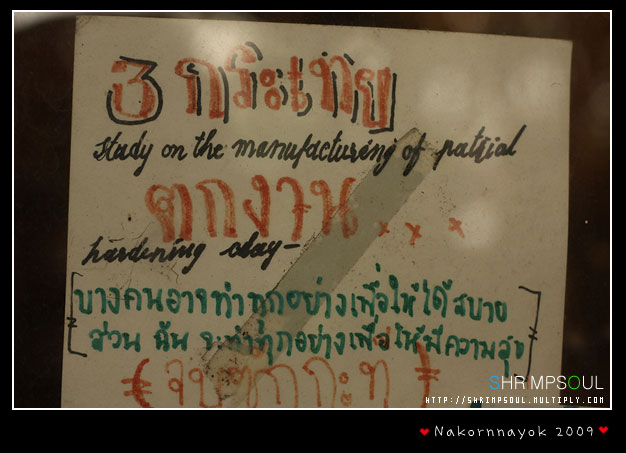 3 กระเทย
study on the manufacturing of patrial
ตกงาน...
hardening clay-
[บางคนอาจทำทุกอย่างเพื่อให้ได้สบาย
ส่วน ฉัน จะทำทุกอย่างเพื่อให้มีความสุข]
SHRIMPSOUL
HTTP://SHRIMPSOUL.MULTIPLY.COM
♥ Nakornnayok 2009 ♥